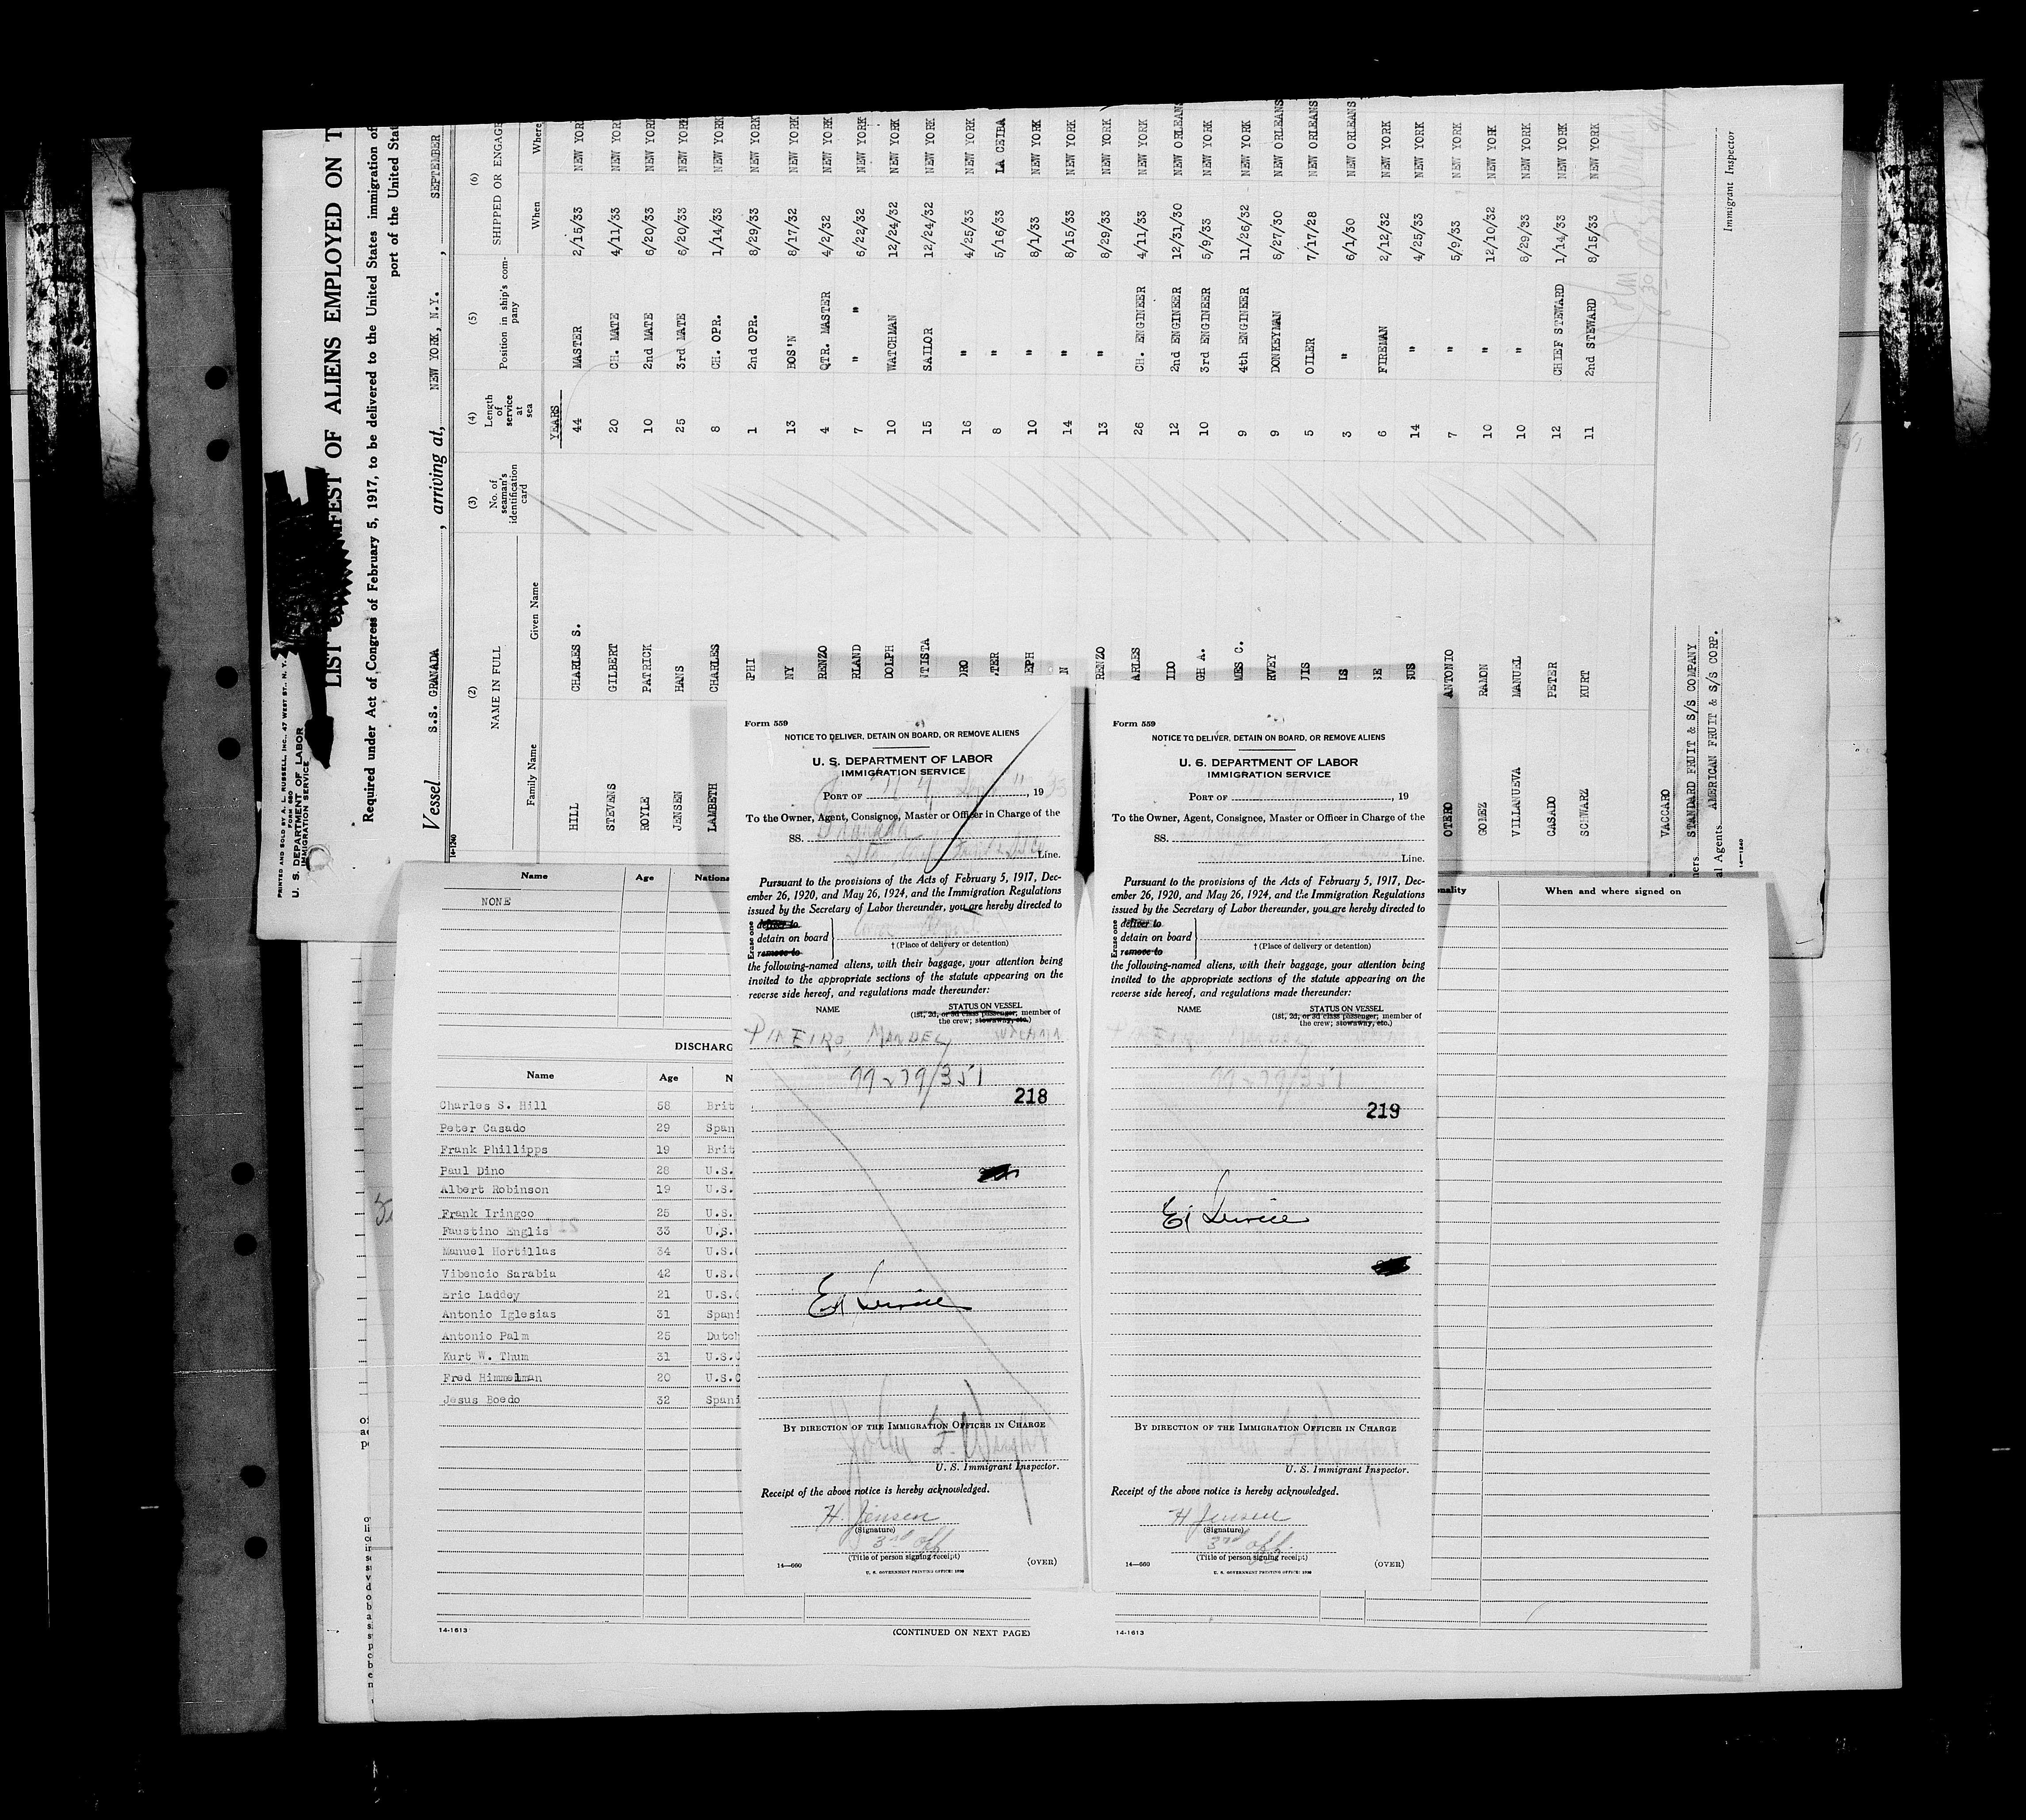 PRINTED AND SOLD BY A. L. RUSSELL, INC., 47 WEST ST., N. Y.
FORM 680
U. S. DEPARTMENT OF LABOR
IMMIGRATION SERVICE
LIST OF ALIENS EMPLOYED ON T
Required under Act of Congress of February 5, 1917, to be delivered to the United States immigration of
port of the United Stat
Vessel S.S. GRANADA, arriving at, NEW YORK, N.Y., SEPTEMBER
14-1240
(2) (3) (4) (5) (6)
NAME IN FULL No. of seaman's identification card Length of service at sea Position in ship's company SHIPPED OR ENGAGE
Family Name Given Name When Where
YEARS
HILL CHARLES S. 44 MASTER 2/15/33 NEW YORK
STEVENS GILBERT 20 CH. MATE 4/11/33 NEW YOR
ROYLE PATRICK 10 2nd MATE 6/20/33 NEW YORK
JENSEN HANS 25 3rd MATE 6/20/33 NEW YORK
LAMBETH CHARLES 8 CH. OPR. 1/14/33 NEW YORK
PHI 1 2nd OPR. 8/29/33 NEW YORK
NY 13 BOS'N 8/17/32 NEW YORK
RENZO 4 QTR. MASTER 4/2/32 NEW YORK
RLAND 7 " " 6/22/32 NEW YORK
DOLPH 10 WATCHMAN 12/24/32 NEW YORK
NTISTA 15 SAILOR 12/24/32 NEW YORK
DRO 16 " 4/25/33 NEW YORK
TER 8 " 5/16/33 LA CEIBA
EPH 10 " 8/1/33 NEW YORK
N 14 " 8/15/33 NEW YORK
RENZO 13 " 8/29/33 NEW YORK
ARLES 26 CH. ENGINEER 4/11/33 NEW YORK
LDO 12 2nd ENGINEER 12/31/30 NEW ORLEANS
GH A. 10 3rd ENGINEER 5/9/33 NEW YORK
MES C. 9 4th ENGINEER 11/26/32 NEW YORK
RVEY 9 DONKEYMAN 8/27/30 NEW ORLEANS
UIS 5 OILER 7/17/28 NEW ORLEANS
IS 3 " 6/1/30 NEW ORLEANS
SE 6 FIREMAN 2/12/32 NEW YORK
SUS 14 " 4/25/33 NEW YORK
OTERO ANTONIO 7 " 5/9/33 NEW YORK
GOMEZ RAMON 10 " 12/10/32 NEW YORK
VILLANUEVA MANUEL 10 " 8/29/33 NEW YORK
CASADO PETER 12 CHIEF STEWARD 1/14/33 NEW YORK
SCHWARZ KURT 11 2nd STEWARD 8/15/33 NEW YORK
VACCARO
ners STANDARD FRUIT & S/S COMPANY
al Agents AMERICAN FRUIT & S/S CORP.
14-1240
Immigrant Inspector
Name Age Nationa
NONE
DISCHARG
Name Age N
Charles S. Hill 58 Brit
Peter Casado 29 Span
Frank Phillipps 19 Brit
Paul Dino 28 U.S.
Albert Robinson 19 U.S.
Frank Iringco 25 U.S.
Faustino Englis 33 U.S.
Manuel Hortillas 34 U.S.
Vibencio Sarabia 42 U.S.
Eric Laddey 21 U.S.
Antonio Iglesias 31 Spani
Antonio Palm 25 Dutch
Kurt W. Thum 31 U.S.
Fred Himmelman 20 U.S.C
Jesus Boedo 32 Spani
14-1613
(CONTINUED ON NEXT PAGE)
Form 559
NOTICE TO DELIVER, DETAIN ON BOARD, OR REMOVE ALIENS
U. S. DEPARTMENT OF LABOR
IMMIGRATION SERVICE
PORT OF N Y, , 19
To the Owner, Agent, Consignee, Master or Officer in Charge of the
SS. Granada
Line.
Pursuant to the provisions of the Acts of February 5, 1917, Dec-
ember 26, 1920, and May 26, 1924, and the Immigration Regulations
issued by the Secretary of Labor thereunder, you are hereby directed to
Erase one
deliver to
detain on board
remove to
† (Place of delivery or detention)
the following-named aliens, with their baggage, your attention being
invited to the appropriate sections of the statute appearing on the
reverse side hereof, and regulations made thereunder:
NAME STATUS ON VESSEL
(1st, 2d, or 3d class passenger; member of
the crew; stowaway, etc.)
PINEIRO, MANUEL
99279/351
218
BY DIRECTION OF THE IMMIGRATION OFFICER IN CHARGE
John F. Wright
U. S. Immigrant Inspector.
Receipt of the above notice is hereby acknowledged.
H. Jensen
(Signature)
3rd off
(Title of person signing receipt)
14—660
(OVER)
U. S. GOVERNMENT PRINTING OFFICE: 1930
Form 559
NOTICE TO DELIVER, DETAIN ON BOARD, OR REMOVE ALIENS
U. S. DEPARTMENT OF LABOR
IMMIGRATION SERVICE
PORT OF , 19
To the Owner, Agent, Consignee, Master or Officer in Charge of the
SS.
Line.
Pursuant to the provisions of the Acts of February 5, 1917, Dec-
ember 26, 1920, and May 26, 1924, and the Immigration Regulations
issued by the Secretary of Labor thereunder, you are hereby directed to
Erase one
deliver to
detain on board
remove to
† (Place of delivery or detention)
the following-named aliens, with their baggage, your attention being
invited to the appropriate sections of the statute appearing on the
reverse side hereof, and regulations made thereunder:
NAME STATUS ON VESSEL
(1st, 2d, or 3d class passenger; member of
the crew; stowaway, etc.)
219
BY DIRECTION OF THE IMMIGRATION OFFICER IN CHARGE
U. S. Immigrant Inspector.
Receipt of the above notice is hereby acknowledged.
H Jensen
(Signature)
3rd off.
(Title of person signing receipt)
14—660
(OVER)
U. S. GOVERNMENT PRINTING OFFICE: 1930
nality When and where signed on
14-1613